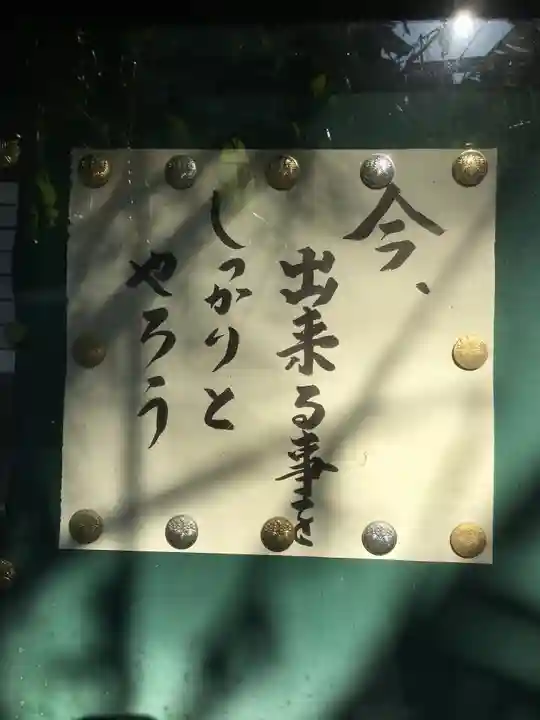 今、
出来る事を
しっかりと
やろう